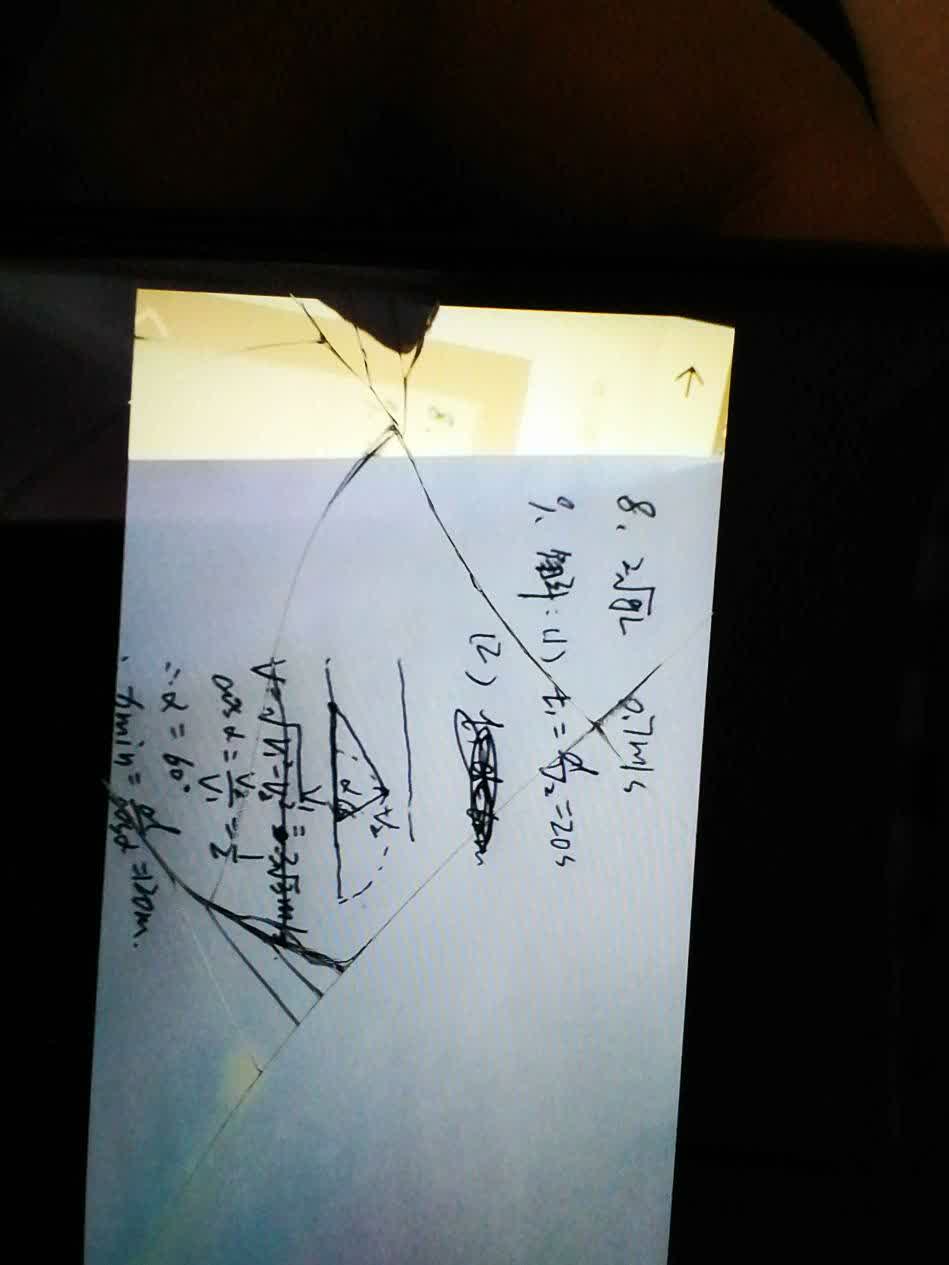 8、2√gL 0.7m/s
9、解：(1) t₁=d/v₂=20s
(2)
v₁ v₂ α
v=√v₁²-v₂²=2√3m/s
cosα=v₂/v₁=1/2
∴α=60°
xmin=d/cosα=120m.